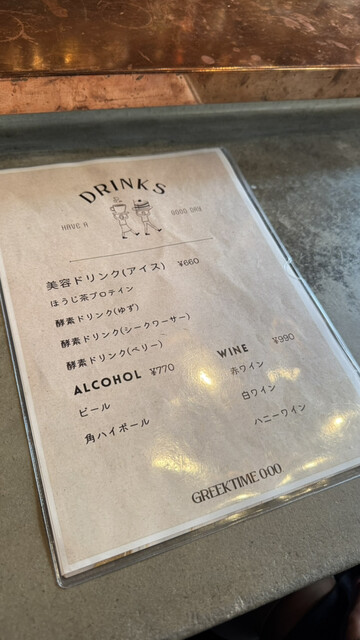 DRINKS
HAVE A GOOD DAY
美容ドリンク(アイス) ¥660
ほうじ茶プロテイン
酵素ドリンク(ゆず)
酵素ドリンク(シークワーサー)
酵素ドリンク(ベリー)
ALCOHOL ¥770
ビール
角ハイボール
WINE ¥990
赤ワイン
白ワイン
ハニーワイン
GREEKTIME 000